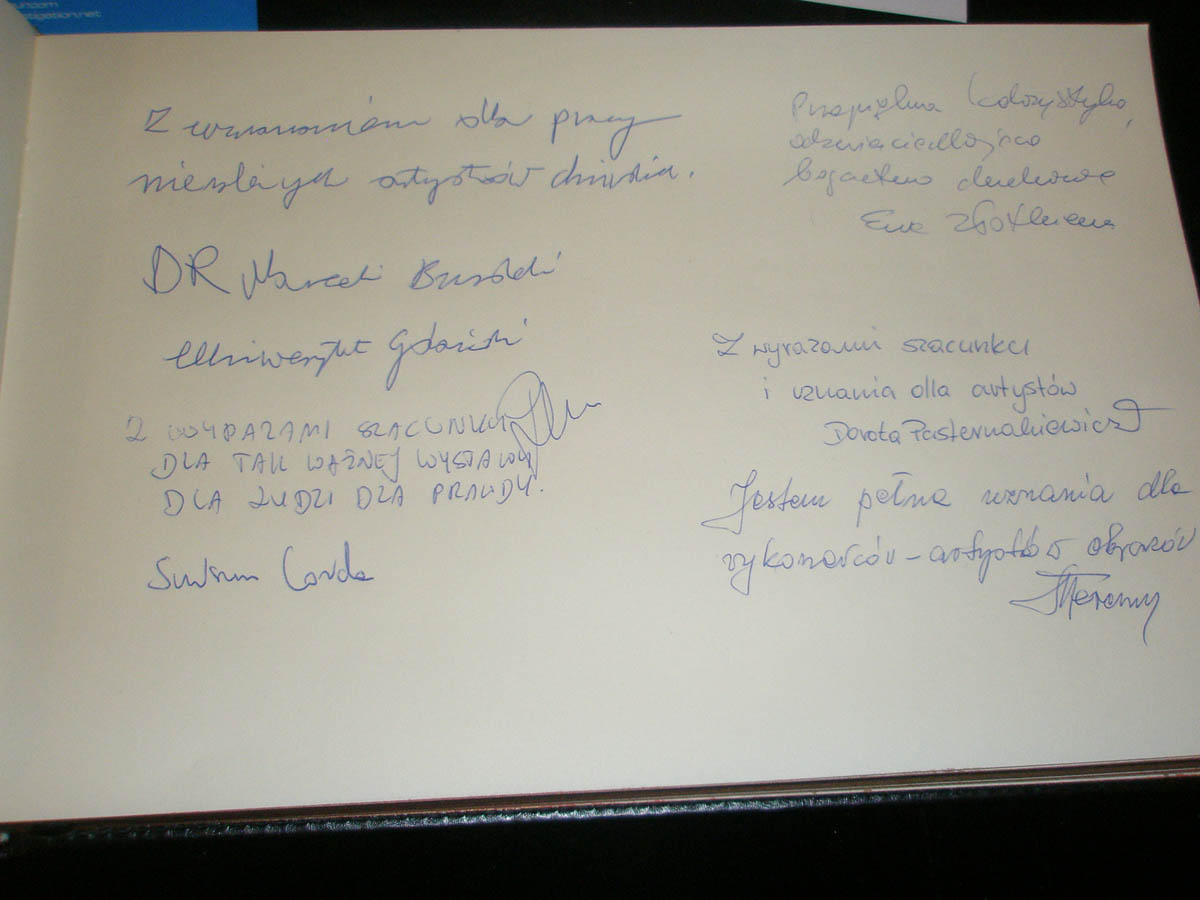 tigation.net
Z uznaniem dla pracy
artystów
DR Marcel
Uniwersytet Gdański
Z WYRAZAMI SZACUNKU
DLA TAK WAŻNEJ WYSTAWY
DLA LUDZI DLA PRAWDY.
Sursum Corda
Przepiękna kolorystyka,
odzwierciedlająca
bogactwo duchowe
Ewa
Z wyrazami szacunku
i uznania dla artystów
Dorota Pasternakiewicz
Jestem pełna uznania dla
wykonawców - artystów obrazów